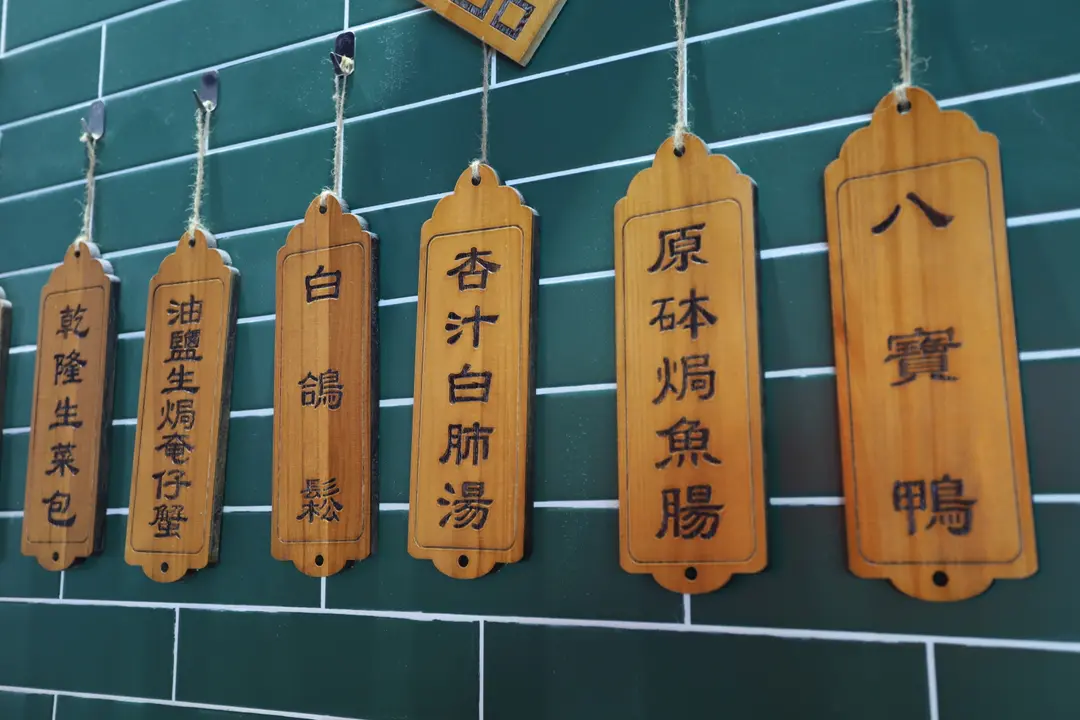 八寶鴨
原砵焗魚腸
杏汁白肺湯
白鴿鬆
油鹽生焗奄仔蟹
乾隆生菜包